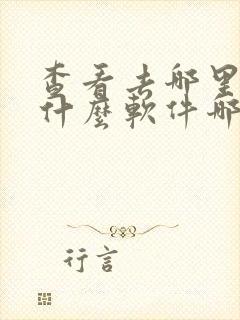 查看去哪里
什麼軟件哪
行言